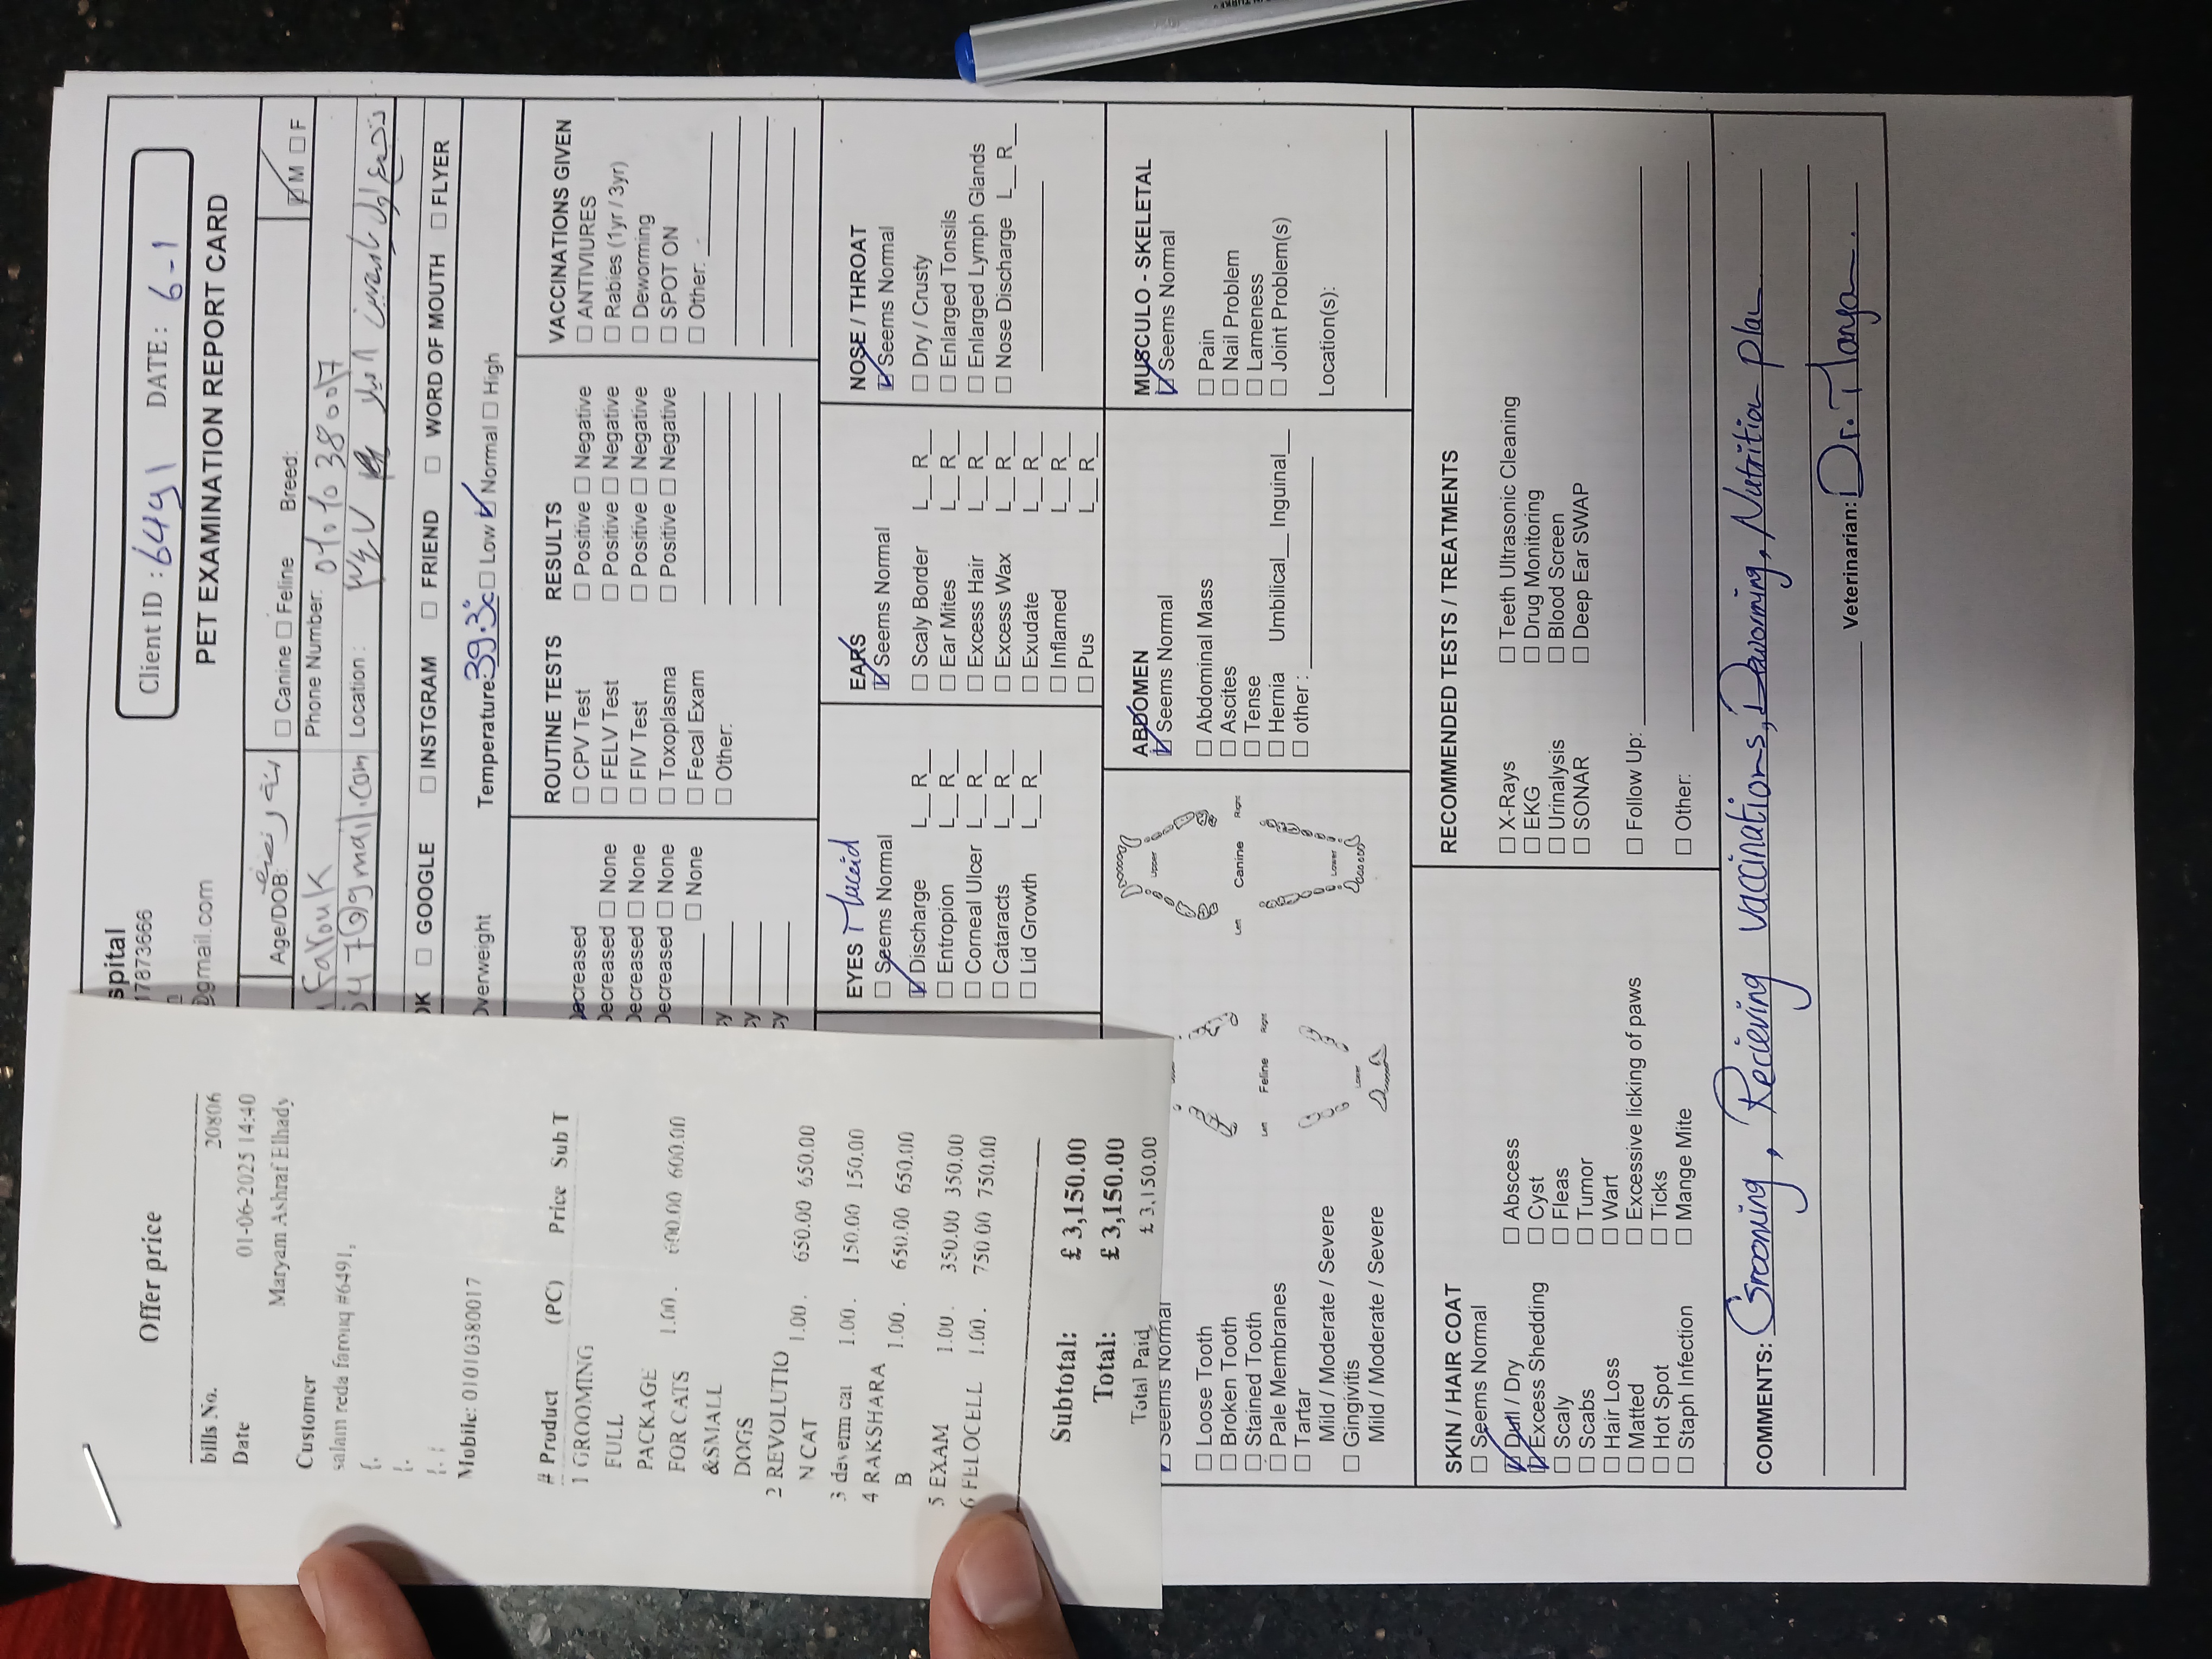 Offer price
bills No. 20806
Date 01-06-2025 14:40
Maryam Ashraf Elhady
Customer
salam reda farouq #6491,
Mobile: 01010380017
# Product (PC) Price Sub T
1 GROOMING
FULL
PACKAGE 1.00. 600.00 600.00
FOR CATS
&SMALL
DOGS
2 REVOLUTIO 1.00. 650.00 650.00
N CAT
3 daverm cat 1.00. 150.00 150.00
4 RAKSHARA 1.00. 650.00 650.00
B
5 EXAM 1.00. 350.00 350.00
6 FELOCELL 1.00. 750.00 750.00
Subtotal: £ 3,150.00
Total: £ 3,150.00
Total Paid £ 3,150.00
spital
17873666
@gmail.com
Client ID : 6491 DATE : 6-1
PET EXAMINATION REPORT CARD
Age/DOB: ☐ Canine ☐ Feline Breed: ☑ M ☐ F
Farouk Phone Number:
@gmail.com Location :
OK ☐ GOOGLE ☐ INSTGRAM ☐ FRIEND ☐ WORD OF MOUTH ☐ FLYER
Overweight Temperature: 39.3c° ☐ Low ☑ Normal ☐ High
Decreased
Decreased ☐ None
Decreased ☐ None
Decreased ☐ None
☐ None
ROUTINE TESTS RESULTS
☐ CPV Test ☐ Positive ☐ Negative
☐ FELV Test ☐ Positive ☐ Negative
☐ FIV Test ☐ Positive ☐ Negative
☐ Toxoplasma ☐ Positive ☐ Negative
☐ Fecal Exam
☐ Other:
VACCINATIONS GIVEN
☐ ANTIVIURES
☐ Rabies (1yr / 3yr)
☐ Deworming
☐ SPOT ON
☐ Other:
EYES
☐ Seems Normal
☑ Discharge L__ R__
☐ Entropion L__ R__
☐ Corneal Ulcer L__ R__
☐ Cataracts L__ R__
☐ Lid Growth L__ R__
EARS
☑ Seems Normal
☐ Scaly Border L__ R__
☐ Ear Mites L__ R__
☐ Excess Hair L__ R__
☐ Excess Wax L__ R__
☐ Exudate L__ R__
☐ Inflamed L__ R__
☐ Pus L__ R__
NOSE / THROAT
☑ Seems Normal
☐ Dry / Crusty
☐ Enlarged Tonsils
☐ Enlarged Lymph Glands
☐ Nose Discharge L__ R__
☑ Seems Normal
☐ Loose Tooth
☐ Broken Tooth
☐ Stained Tooth
☐ Pale Membranes
☐ Tartar
Mild / Moderate / Severe
☐ Gingivitis
Mild / Moderate / Severe
Left Feline Right
Lower
Upper
Left Canine Right
Lower
ABDOMEN
☑ Seems Normal
☐ Abdominal Mass
☐ Ascites
☐ Tense
☐ Hernia Umbilical__ Inguinal__
☐ other :
MUSCULO - SKELETAL
☑ Seems Normal
☐ Pain
☐ Nail Problem
☐ Lameness
☐ Joint Problem(s)
Location(s):
SKIN / HAIR COAT
☐ Seems Normal
☑ Dull / Dry
☑ Excess Shedding
☐ Scaly
☐ Scabs
☐ Hair Loss
☐ Matted
☐ Hot Spot
☐ Staph Infection
☐ Abscess
☐ Cyst
☐ Fleas
☐ Tumor
☐ Wart
☐ Excessive licking of paws
☐ Ticks
☐ Mange Mite
RECOMMENDED TESTS / TREATMENTS
☐ X-Rays ☐ Teeth Ultrasonic Cleaning
☐ EKG ☐ Drug Monitoring
☐ Urinalysis ☐ Blood Screen
☐ SONAR ☐ Deep Ear SWAP
☐ Follow Up:
☐ Other:
COMMENTS: Grooming, Recieving vaccinations, Dewoming, Nutrition plan
Veterinarian: Dr.